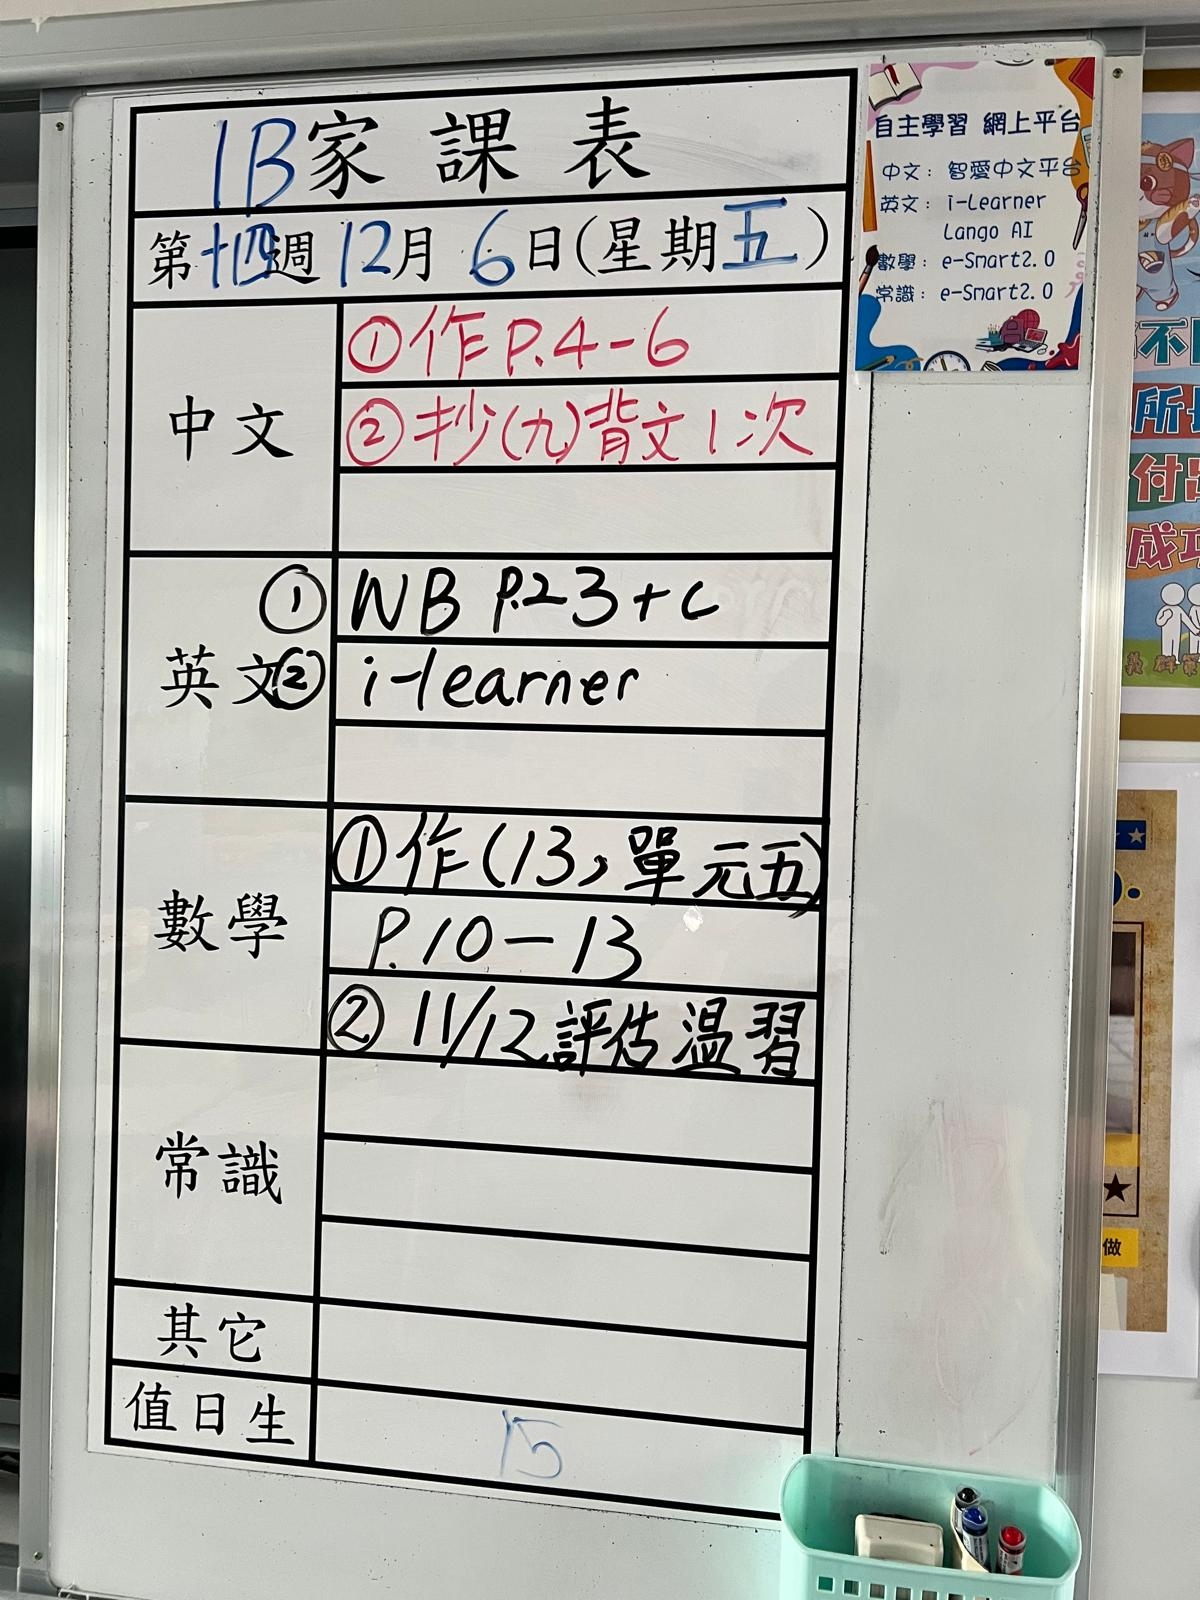 1B家課表
第十四週 12月 6日(星期五)
中文
①作 P.4-6
②抄(九)背文1次
英文
① WB P.23+c
② i-learner
數學
①作(13,單元五)
P.10-13
② 11/12評估溫習
常識
其它
值日生
15
自主學習 網上平台
中文：智愛中文平台
英文：i-Learner
Lango AI
數學：e-Smart2.0
常識：e-Smart2.0
不
所
付出
成功
做